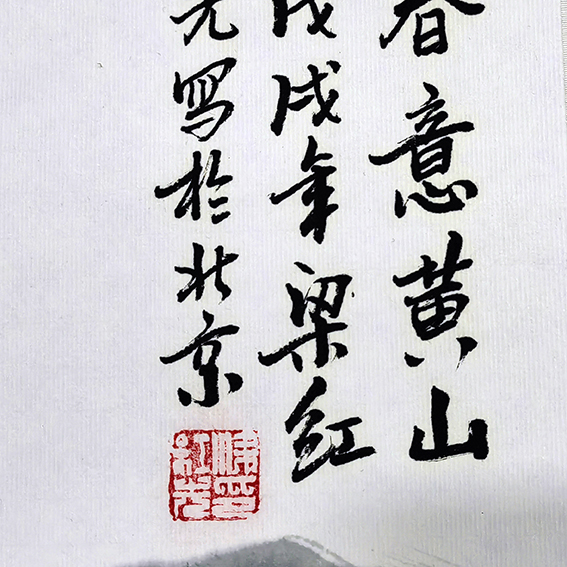 春意黄山
戊戌年梁红
光写於北京